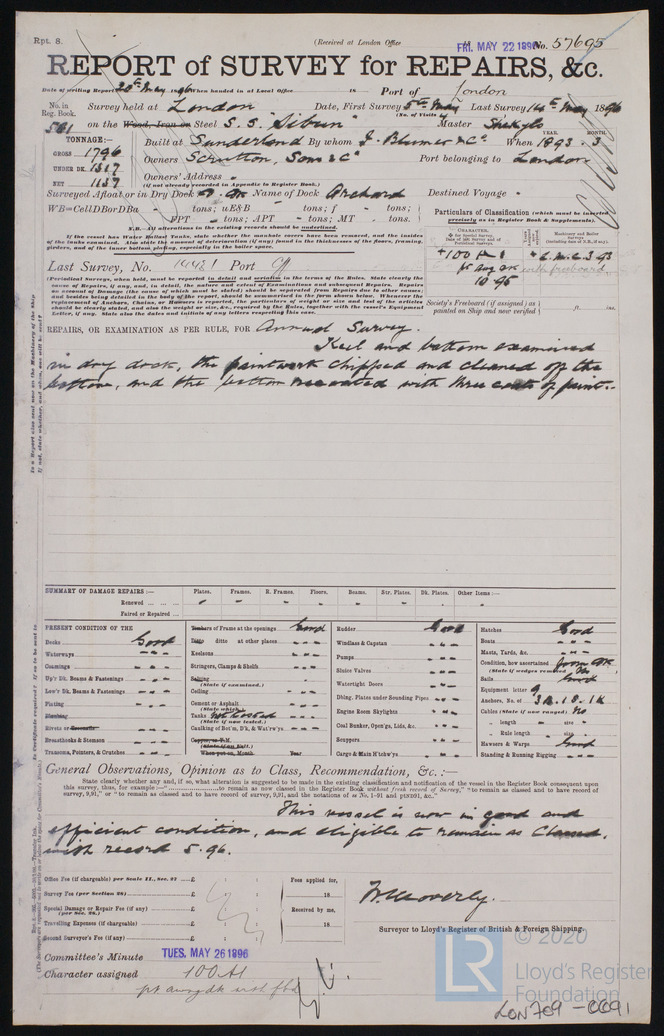 Rpt. 8.
(Received at London Office
FRI. MAY 22 1896
No. 57695
REPORT of SURVEY for REPAIRS, &c.
Date of writing Report 20th May 1896 When handed in at Local Office 18 Port of London
No. in Reg. Book. Survey held at London Date, First Survey 5th May Last Survey 14th May 1896
(No. of Visits
561 on the Wood, Iron or Steel S.S. "Sibun" Master
TONNAGE:— Built at Sunderland By whom J. Blumer & Co When 1893 . 3
YEAR. MONTH.
GROSS 1796 Owners Scrutton, Sons & Co Port belonging to London
UNDER DK. 1317 Owners' Address
NET 1137 (if not already recorded in Appendix to Register Book.)
Surveyed Afloat or in Dry Dock Name of Dock Orchard Destined Voyage -
WB=CellDBorDBa tons; uE&B tons; f tons;
FPT - tons; APT - tons; MT - tons.
N.B.—All alterations in the existing records should be underlined.
Particulars of Classification (which must be inserted precisely as in Register Book & Supplements).
If the vessel has Water Ballast Tanks, state whether the manhole covers have been removed, and the insides of the tanks examined. Also state the amount of deterioration (if any) found in the thicknesses of the floors, framing, girders, and of the inner bottom plating, especially in the boiler space.
CHARACTER.
+100 A1
10 95
+ L.M.C. 3, 93
with freeboard
Last Survey, No. Port
(Periodical Surveys, when held, must be reported in detail and seriatim in the terms of the Rules. State clearly the cause of Repairs, if any, and, in detail, the nature and extent of Examinations and subsequent Repairs. Repairs on account of Damage (the cause of which must be stated) should be separated from Repairs due to other causes;
Society's Freeboard (if assigned) as painted on Ship and now verified ft. ins.
REPAIRS, OR EXAMINATION AS PER RULE, FOR Annual Survey.
Keel and bottom examined
in dry dock, the paintwork chipped and cleaned off the
bottom, and the bottom recoated with three coats of paint.
SUMMARY OF DAMAGE REPAIRS:— Plates. Frames. R. Frames. Floors. Beams. Str. Plates. Dk. Plates. Other Items:—
Renewed ... ... ...
Faired or Repaired ...
PRESENT CONDITION OF THE
Decks Good
Waterways
Coamings
Up'r Dk. Beams & Fastenings
Low'r Dk. Beams & Fastenings
Plating
Planking
Rivets or Treenails
Breasthooks & Stemson
Transoms, Pointers, & Crutches
Timbers of Frame at the openings Good
Ditto ditto at other places
Keelsons
Stringers, Clamps & Shelfs
Salting (State if examined.)
Ceiling
Cement or Asphalt (State which.)
Tanks Not tested (State if now tested.)
Caulking of Bot'm, D'k, & Wat'rw'ys
When put on, Month Year
Rudder Good
Windlass & Capstan
Pumps
Sluice Valves
Watertight Doors
Dbling. Plates under Sounding Pipes
Engine Room Skylights
Coal Bunker, Open'gs, Lids, &c.
Scuppers
Cargo & Main H'tchw'ys
Hatches Good
Boats
Masts, Yards, &c.
Condition, how ascertained from dk
(State if wedges removed No
Sails Good
Equipment letter
Anchors, No. of 3B. 1S. 1K
Cables (State if now ranged) No
" length size
" Rule length size
Hawsers & Warps Good
Standing & Running Rigging
General Observations, Opinion as to Class, Recommendation, &c.:—
State clearly whether any, and if, so, what alteration is suggested to be made in the existing classification and notification of the vessel in the Register Book consequent upon
this survey, thus, for example:—"..................to remain as now classed in the Register Book without fresh record of Survey," "to remain as classed and to have record of
survey, 9,91," or "to remain as classed and to have record of survey, 9,91, and the notations of ss No. 1-91 and PSND91, &c."
This vessel is now in good and
efficient condition, and eligible to remain as Classed,
with record 5.96.
Office Fee (if chargeable) per Scale II., Sec. 27 ... £ : :
Survey Fee (per Section 28) ... £ : :
Special Damage or Repair Fee (if any) (per Sec. 28.) ... £ : :
Travelling Expenses (if chargeable) ... £ : :
Second Surveyor's Fee (if any) ... £ : :
Fees applied for, 18
Received by me, 18
Surveyor to Lloyd's Register of British & Foreign Shipping.
Committee's Minute TUES. MAY 26 1896
Character assigned 100 A1
© 2020
LR
Lloyd's Register
Foundation
LON709-0091